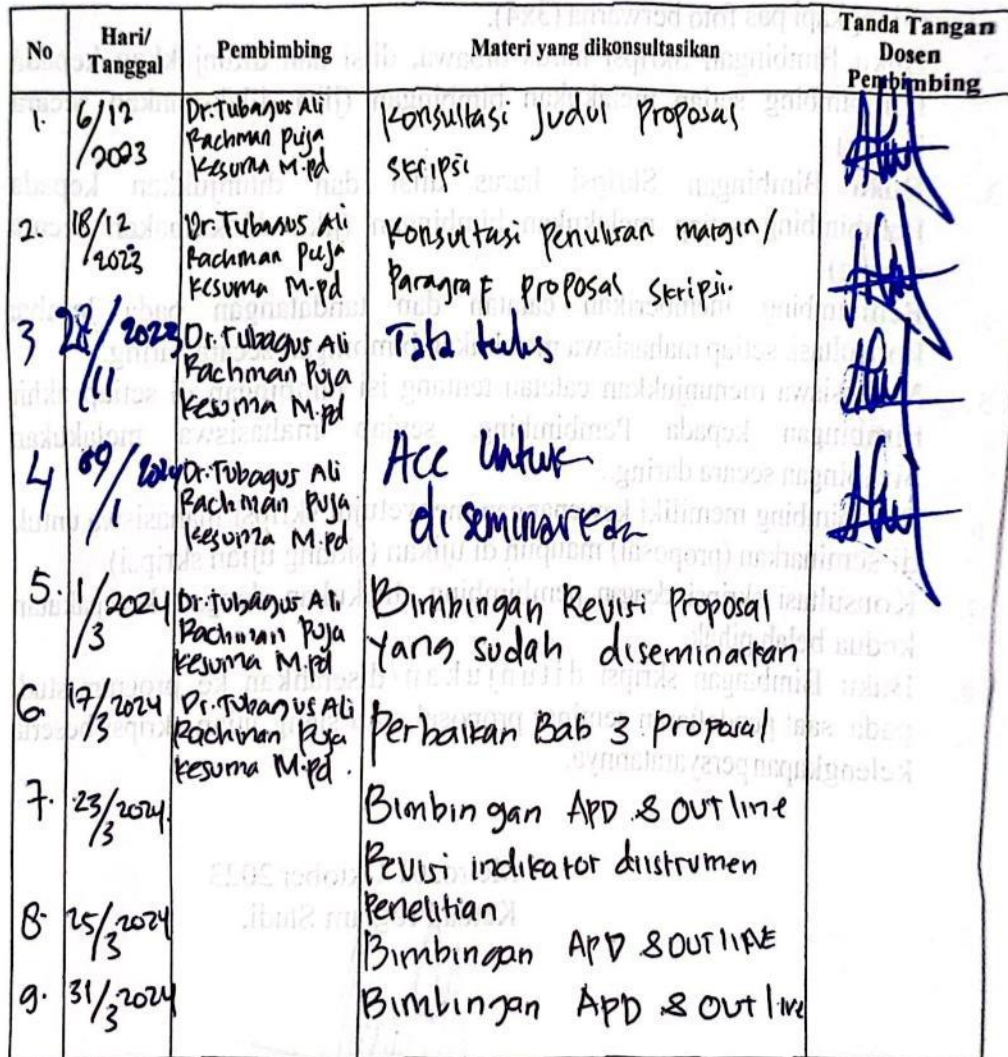 No
Hari/
Tanggal
Pembimbing
Materi yang dikonsultasikan
Tanda Tangan
Dosen
Pembimbing
1. 6/12 2023
Dr. Tubagus Ali
Rachman Puja
Kesuma M.pd
Konsultasi Judul Proposal
skripsi
2. 18/12 2023
Dr. Tubagus Ali
Rachman Puja
Kesuma M.pd
Konsultasi penulisan margin/
Paragraf proposal skripsi.
3 28/11 2023
Dr. Tubagus Ali
Rachman Puja
Kesuma M.pd
Tata tulis
4 09/1 2024
Dr. Tubagus Ali
Rachman Puja
Kesuma M.pd
Acc Untuk
diseminarkan
5. 1/3 2024
Dr. Tubagus Ali
Rachman Puja
Kesuma M.pd
Bimbingan Revisi Proposal
yang sudah diseminarkan
6. 17/3 2024
Dr. Tubagus Ali
Rachman Puja
Kesuma M.pd.
Perbaikan Bab 3 proposal
7. 23/3 2024.
Bimbingan APD & outline
Revisi indikator diistrumen
Penelitian
8. 25/3 2024
Bimbingan APD & OUTLINE
9. 31/3 2024
Bimbingan APD & outline